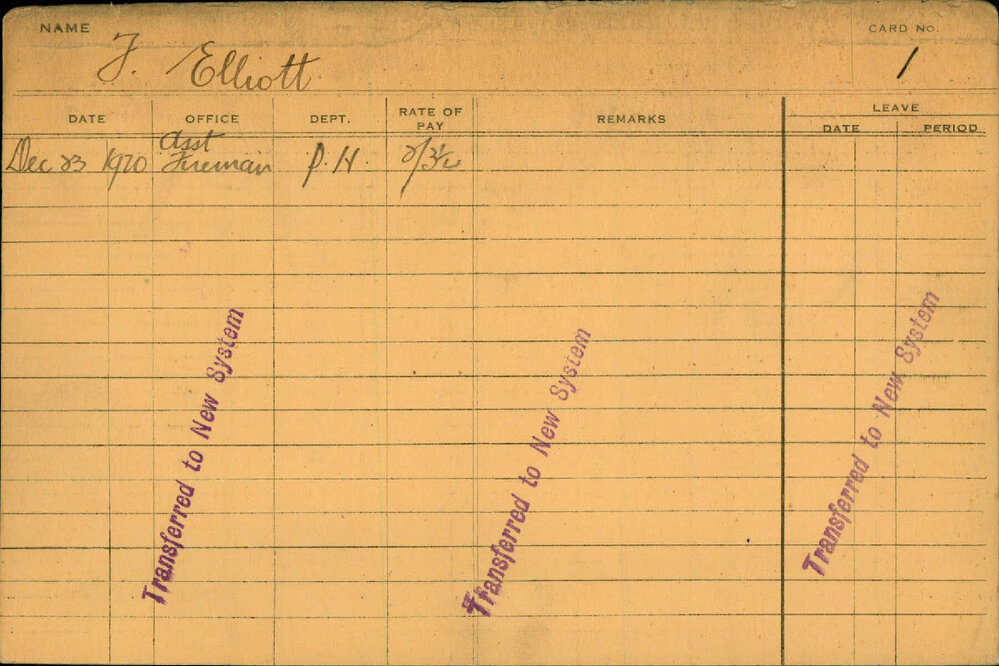 NAME
CARD NO.
J. Elliott
1
DATE OFFICE DEPT. RATE OF PAY REMARKS LEAVE
DATE PERIOD
Asst
Dec 23 1920 Fireman P.H.
Transferred to New System
Transferred to New System
Transferred to New System